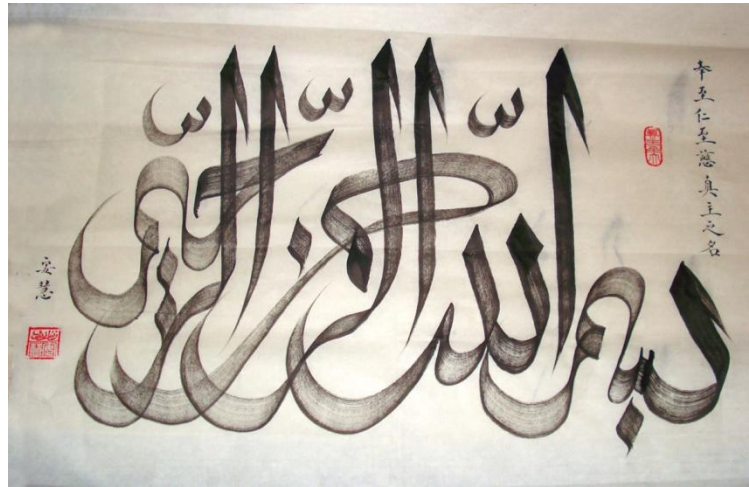 بسم الله الرحمن الرحيم
奉至仁至慈真主之名